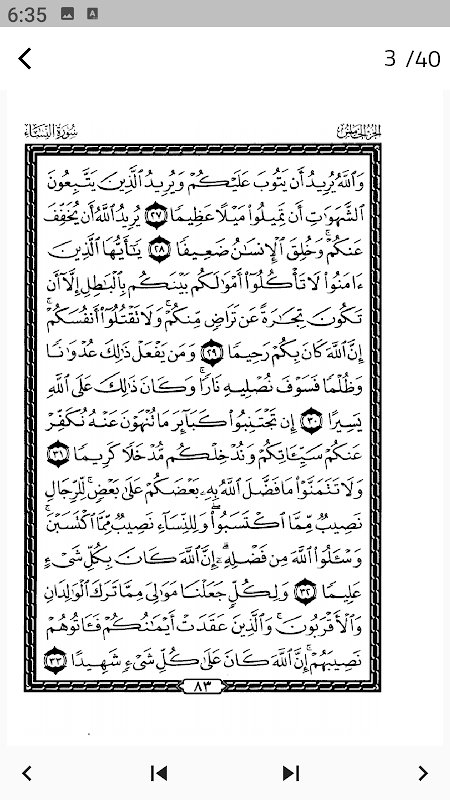 6:35
3 /40
سُورَةُ النِّسَاءِ
الجزء الخامس
وَاللَّهُ يُرِيدُ أَن يَتُوبَ عَلَيْكُمْ وَيُرِيدُ الَّذِينَ يَتَّبِعُونَ
الشَّهَوَاتِ أَن تَمِيلُوا۟ مَيْلًا عَظِيمًا ٢٧ يُرِيدُ اللَّهُ أَن يُخَفِّفَ
عَنكُمْ ۚ وَخُلِقَ الْإِنسَـٰنُ ضَعِيفًا ٢٨ يَـٰٓأَيُّهَا الَّذِينَ
ءَامَنُوا۟ لَا تَأْكُلُوٓا۟ أَمْوَٰلَكُم بَيْنَكُم بِالْبَـٰطِلِ إِلَّآ أَن
تَكُونَ تِجَـٰرَةً عَن تَرَاضٍ مِّنكُمْ ۚ وَلَا تَقْتُلُوٓا۟ أَنفُسَكُمْ ۚ
إِنَّ اللَّهَ كَانَ بِكُمْ رَحِيمًا ٢٩ وَمَن يَفْعَلْ ذَٰلِكَ عُدْوَٰنًا
وَظُلْمًا فَسَوْفَ نُصْلِيهِ نَارًا ۚ وَكَانَ ذَٰلِكَ عَلَى اللَّهِ
يَسِيرًا ٣٠ إِن تَجْتَنِبُوا۟ كَبَآئِرَ مَا تُنْهَوْنَ عَنْهُ نُكَفِّرْ
عَنكُمْ سَيِّـَٔاتِكُمْ وَنُدْخِلْكُم مُّدْخَلًا كَرِيمًا ٣١
وَلَا تَتَمَنَّوْا۟ مَا فَضَّلَ اللَّهُ بِهِۦ بَعْضَكُمْ عَلَىٰ بَعْضٍ ۚ لِّلرِّجَالِ
نَصِيبٌ مِّمَّا اكْتَسَبُوا۟ ۖ وَلِلنِّسَآءِ نَصِيبٌ مِّمَّا اكْتَسَبْنَ ۚ
وَسْـَٔلُوا۟ اللَّهَ مِن فَضْلِهِۦٓ ۗ إِنَّ اللَّهَ كَانَ بِكُلِّ شَىْءٍ
عَلِيمًا ٣٢ وَلِكُلٍّ جَعَلْنَا مَوَٰلِىَ مِمَّا تَرَكَ الْوَٰلِدَانِ
وَالْأَقْرَبُونَ ۚ وَالَّذِينَ عَقَدَتْ أَيْمَـٰنُكُمْ فَـَٔاتُوهُمْ
نَصِيبَهُمْ ۚ إِنَّ اللَّهَ كَانَ عَلَىٰ كُلِّ شَىْءٍ شَهِيدًا ٣٣
٨٣